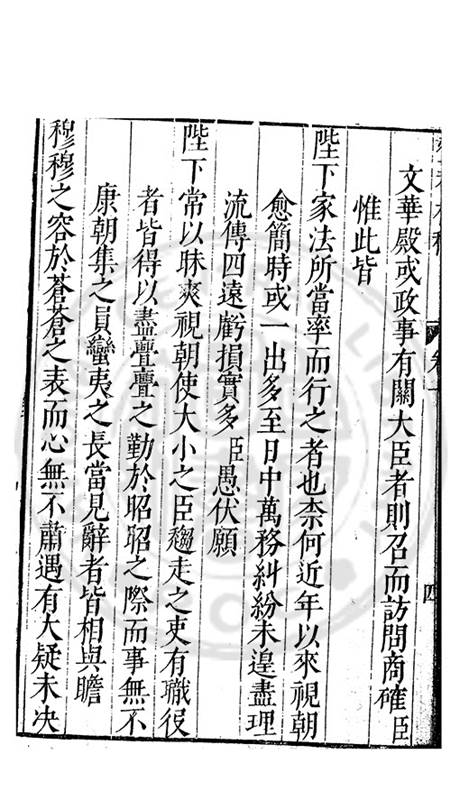 文華殿或政事有關大臣者則召而訪問商確臣
惟此皆
陛下家法所當率而行之者也柰何近年以來視朝
愈簡時或一出多至日中萬務糾紛未遑盡理
流傳四遠虧損實多臣愚伏願
陛下常以昧爽視朝使大小之臣趨走之吏有職役
者皆得以盡亹亹之勤於昭昭之際而事無不
康朝集之員蠻夷之長當見辭者皆相與瞻
穆穆之容於蒼蒼之表而心無不肅遇有大疑未決
卷一
四